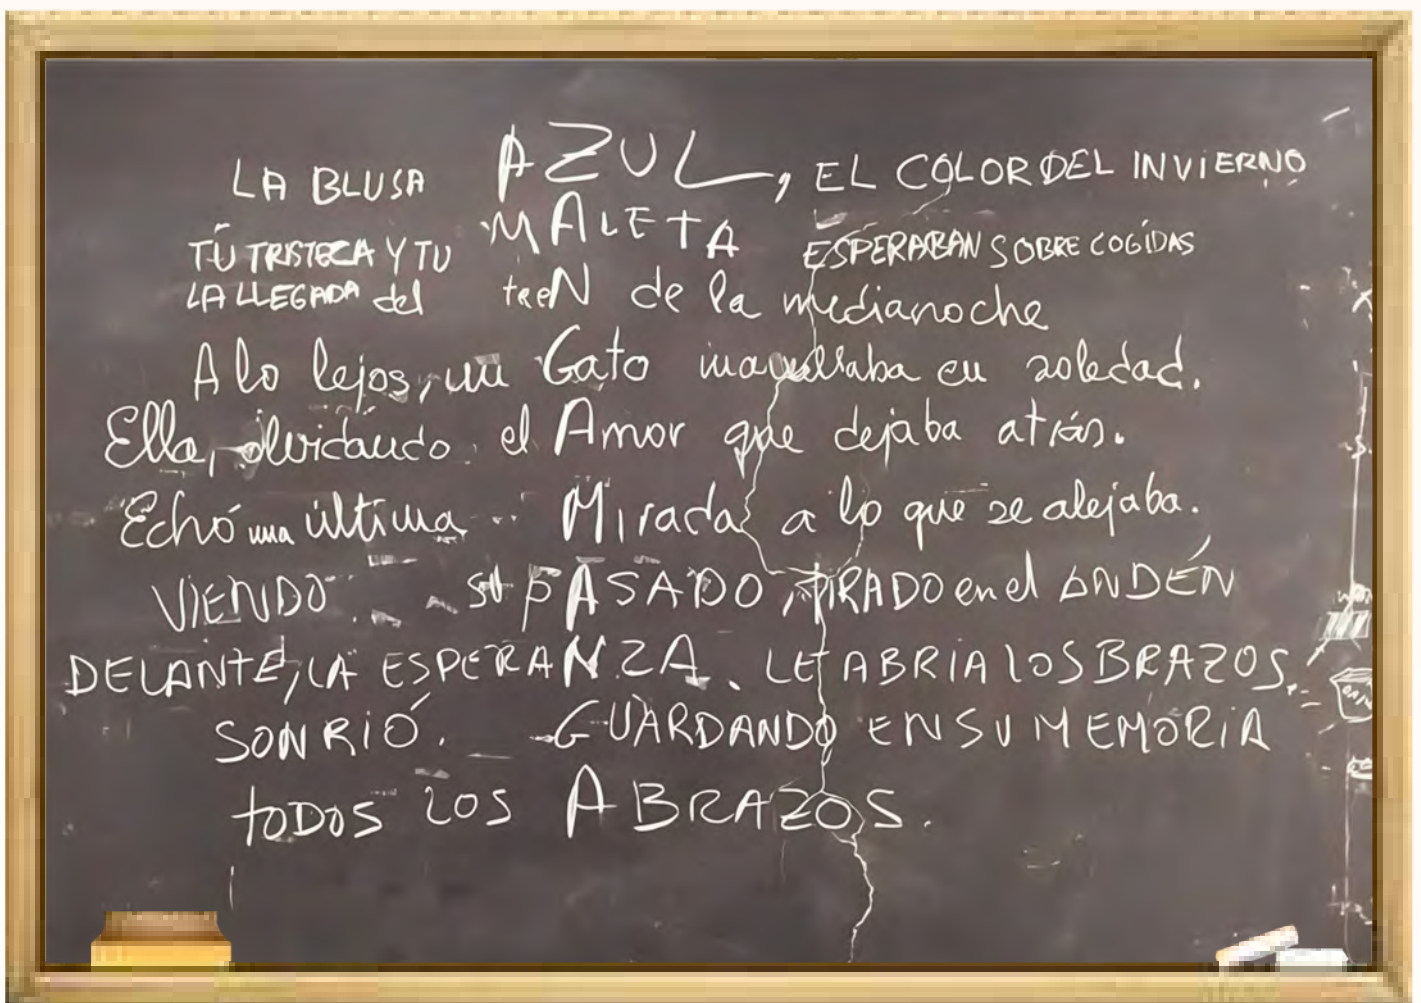 LA BLUSA AZUL, EL COLOR DEL INVIERNO
TÚ TRISTECA Y TU MALETA ESPERABAN SOBRE COGIDAS
LA LLEGADA del treN de la medianoche
A lo lejos, un Gato maullaba en soledad.
Ella, olvidando el Amor que dejaba atrás.
Echó una última Mirada a lo que se alejaba.
VIENDO su PASADO, TIRADO en el ANDÉN
DELANTE, LA ESPERANZA. LE ABRIA LOS BRAZOS.
SONRIÓ. GUARDANDO EN SU MEMORIA
toDOS LOS ABRAZOS.